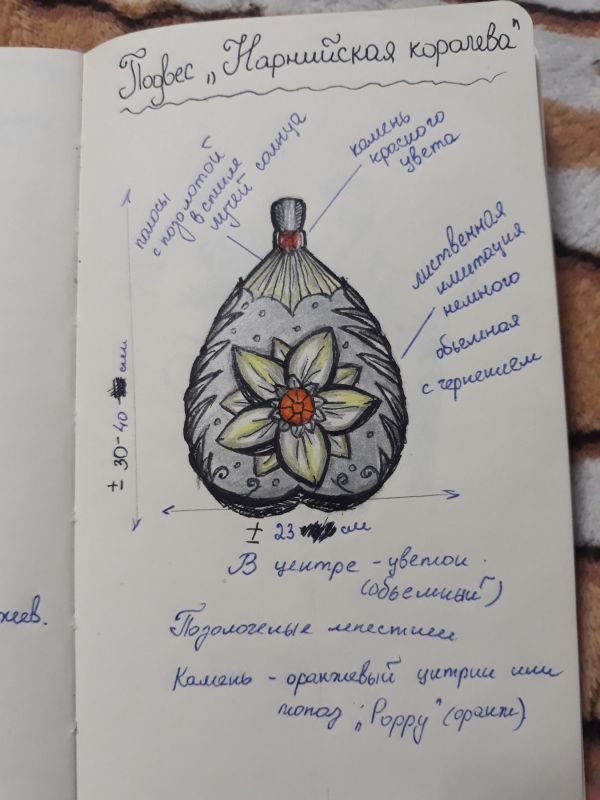 Подвес „Нарнийская королева"
полосы
с позолотой
в стиле
лучей солнца
камень
красного
цвета
лиственная
имитация
немного
объемная
с чернением
± 30-40 мм
± 23 мм
В центре - цветок.
(объемный)
Позолоченые лепестки
Камень - оранжевый цитрин или
топаз „Poppy" (оранж)
жеев.